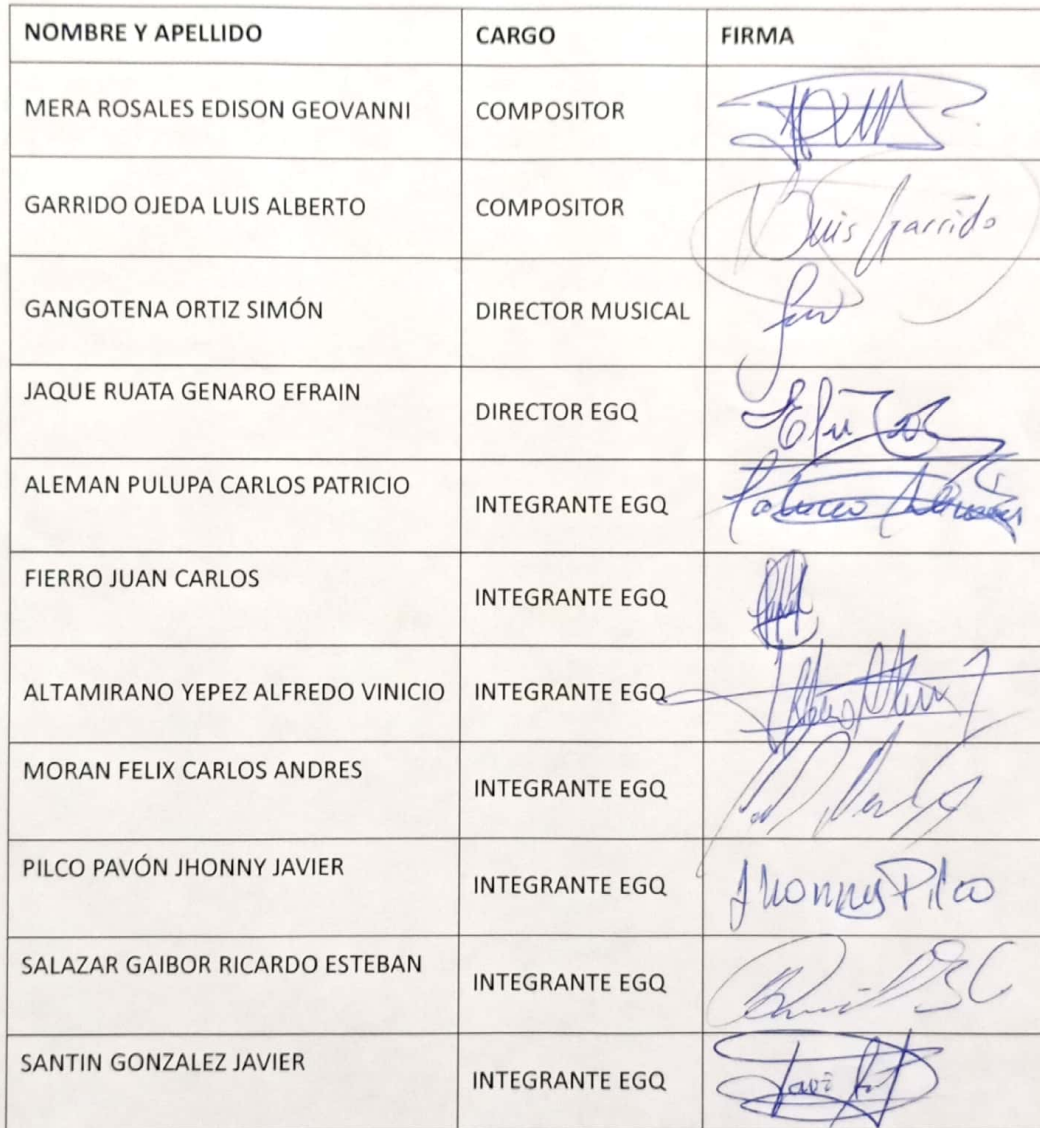 NOMBRE Y APELLIDO CARGO FIRMA
MERA ROSALES EDISON GEOVANNI COMPOSITOR
GARRIDO OJEDA LUIS ALBERTO COMPOSITOR Luis Garrido
GANGOTENA ORTIZ SIMÓN DIRECTOR MUSICAL
JAQUE RUATA GENARO EFRAIN DIRECTOR EGQ
ALEMAN PULUPA CARLOS PATRICIO INTEGRANTE EGQ
FIERRO JUAN CARLOS INTEGRANTE EGQ
ALTAMIRANO YEPEZ ALFREDO VINICIO INTEGRANTE EGQ
MORAN FELIX CARLOS ANDRES INTEGRANTE EGQ
PILCO PAVÓN JHONNY JAVIER INTEGRANTE EGQ Jhonny Pilco
SALAZAR GAIBOR RICARDO ESTEBAN INTEGRANTE EGQ
SANTIN GONZALEZ JAVIER INTEGRANTE EGQ